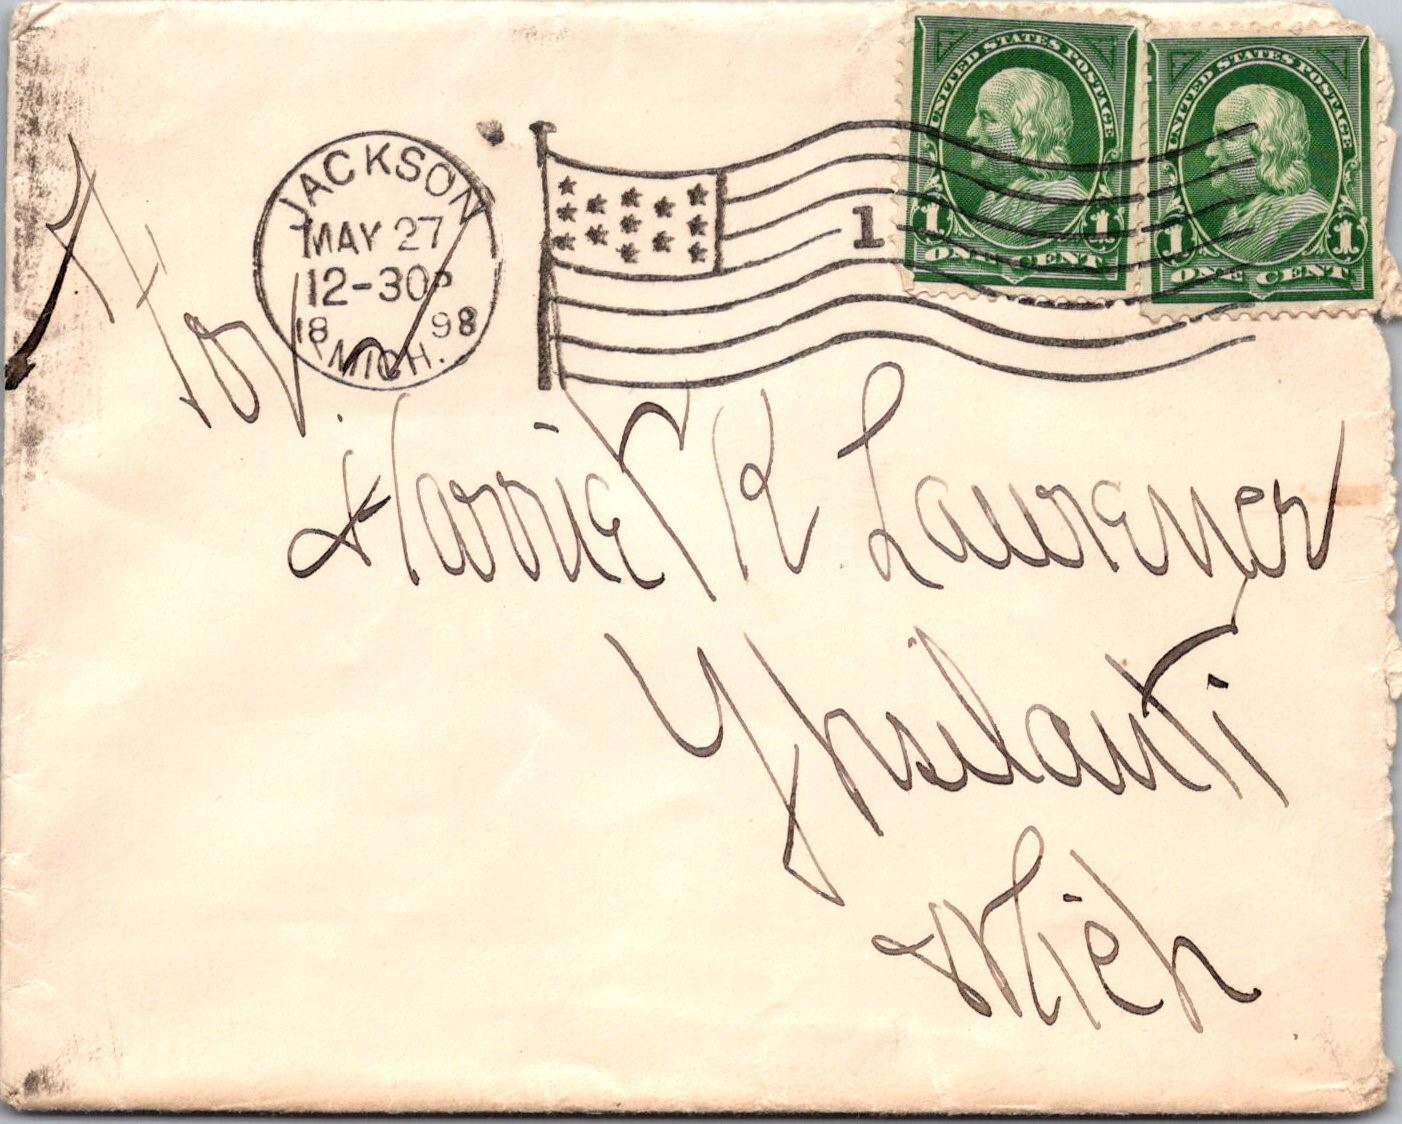 UNITED STATES POSTAGE
1 1
ONE CENT
UNITED STATES POSTAGE
1 1
ONE CENT
JACKSON
MAY 27
12-30P
18 98
MICH.
1
For
Harriet K Lawrence
Ypsilanti
Mich